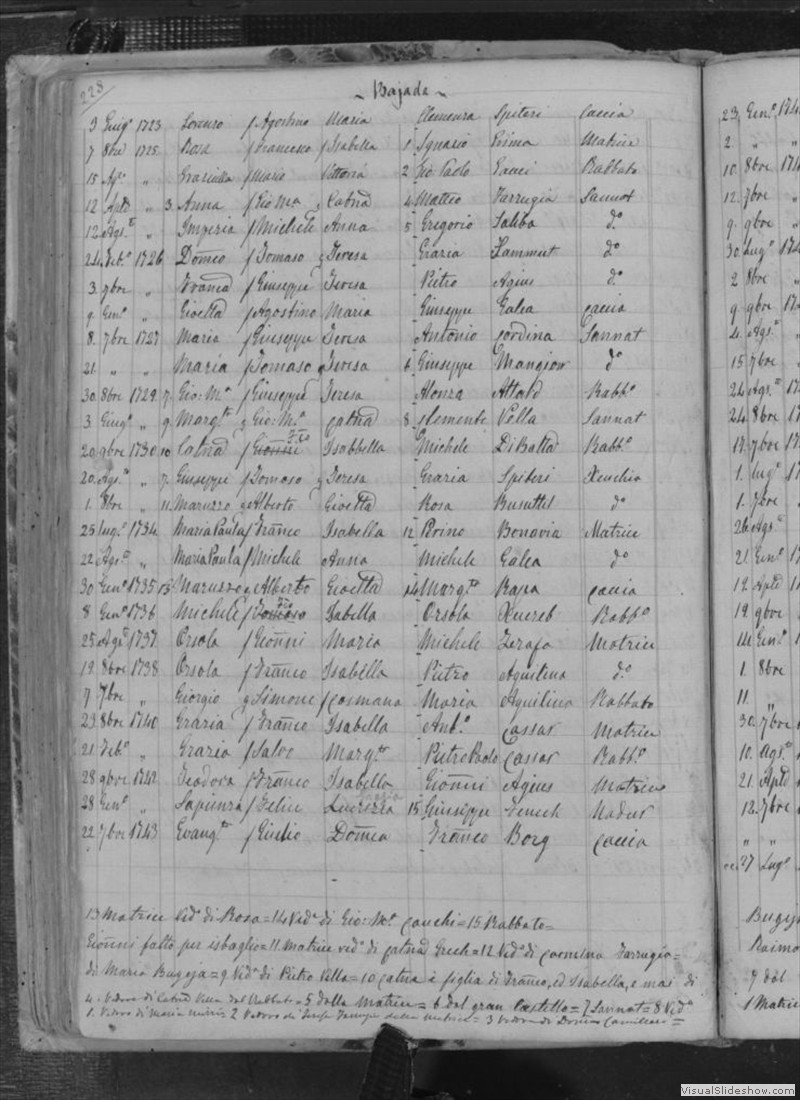 228
~ Bajada ~
9 Giug° 1723 Lorenzo f Agostino Maria Clemenza Spiteri Caccia
7 8bre 1725 Rosa f Francesco f Isabella 1 Ignazio Prima Matrice
15 Ag° „ Graziulla f Mario Vittoria 2 Gio Paolo Cauci Rabbato
12 Aple „ 3. Anna f Gio Ma g Catna 4 Matteo Farrugia Sannat
12 Ags.to „ Imperia f Michele Anna 5 Gregorio Saliba d°
24 Feb.° 1726 Domco f Tomaso g Teresa Grazia Sammut d°
3. 9bre „ f Giuseppe Teresa Pietro Agius d°
9. Gen.° „ Gioetta f Agostino Maria Giuseppe Galea Caccia
8. 7bre 1727 Maria f Giuseppe Teresa Antonio Cordina Sannat
21. „ „ Maria f Tomaso g Teresa 6 Giuseppe Mangion d°
30. 8bre 1729. 7. Gio: M.a f Giuseppe Teresa Alonza Attard Rabb.°
3. Giug° „ 9. Marg.ta g Gio: M.a Catna 8 Clemente Vella Sannat
20. 9bre 1730 10 Catna f Gionni F.co Isabbella Michele DiBatta Rabb.°
20. Ag.to „ 7. Giuseppe f Tomaso g Teresa Grazia Spiteri Xeuchia
1. 8bre „ 11. Maruzzo g Alberto Gioetta Rosa Busuttil d°
25 Lug.° 1734 Maria Paula f Franco Isabella 12 Perino Bonavia Matrice
22 Ag.to „ Maria Paula f Michele Anna Michele Galea d°
30 Gen.° 1735 13 Maruzzo g Alberto Gioetta 14 Marg.ta Rapa Caccia
8 Gen.° 1736 Michele f Tomaso F.co Isabella Orsola Xuereb Rabb.°
25 Ag.to 1737. Orsola f Gionni Maria Michele Zerafa Matrice
19. 8bre 1738 Orsola f Franco Isabella Pietro Aquilina d.°
9 7bre „ Giorgio g Simone f Cosmana Maria Aquilina Rabbato
23 8bre 1740 Grazia f Franco Isabella Ant.° Cassar Matrice
21. Feb.° „ Grazia f Salvo Marg.ta Pietro Paolo Cassar Rabb.°
28 9bre 1742 Teodora f Franco Isabella Gionni Agius Matrice
28 Gen.° „ Sapienza f Felice Lucrezia 15 Giuseppe Zenech Nadur
22 7bre 1743 Evang.ta f Giulio Domca Franco Borg Caccia
13 Matrice Ved.° di Rosa = 14 Ved.a di Gio: M.a Cauchi = 15 Rabbato =
Gionni fatto per isbaglio = 11 Matrice ved.° di Catna Grech = 12 Ved.° di Carmina Farrugia =
di Maria Bugeja = 9 Ved.a di Pietro Vella = 10 Catna è figlia di Franco, ed Isabella, e mai di
4. Vedovo di Catna Vella dal Rabbato = 5 della Matrice = 6 dal gran Castello = 7 Sannat = 8 Ved.°
1. Vedovo di Maria 2 Vedovo di Farrugia della Matrice = 3 Vedova di Domco Camilleri =
23. Gen.° 174
2. „ „
10. 8bre 174
12. 7bre „
9. 9bre „
30 Lug.° 174
2 8bre „
9 9bre 17
4. Ags.° „
15 7bre „
24 Ags.to 17
24. 8bre 17
19. 7bre 17
1. Lug° 17
1. 7bre „
26 Ags.°
21 Gen.° 17
12. Aple 17
19. 9bre
14 Gen.°
1. 8bre
11. „
30. 7bre
10. Ags.°
21. Aple
12. 7bre
„ „
27 Lug.°
Bugej
Raimo
9 dal
1 Matrice
VisualSlideshow.com